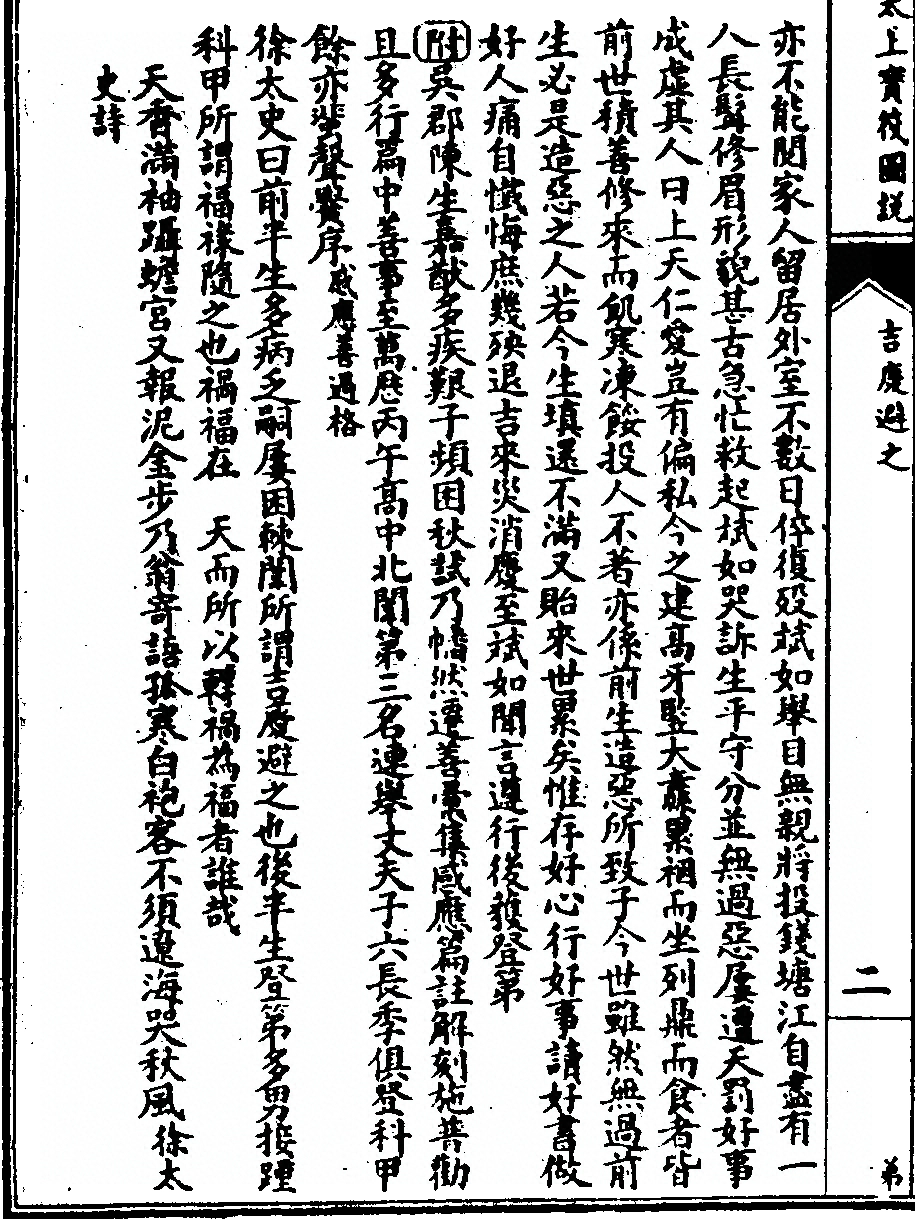 太上寶筏圖説
吉慶避之
二
亦不能閱家人留居外室不數日倅復歿斌如舉目無親將投錢塘江自盡有一
人長髯修眉形貌甚古急忙救起斌如哭訴生平守分並無過惡屢遭天罰好事
成虛其人曰上天仁愛豈有偏私今之建高牙豎大纛累裀而坐列鼎而食者皆
前世積善修來而飢寒凍餒投人不著亦係前生造惡所致子今世雖然無過前
生必是造惡之人若今生填還不滿又貽來世累矣惟存好心行好事請好書做
好人痛自懺悔庶幾殃退吉來災消慶至斌如聞言遵行後獲登第
附吳郡陳生嘉猷多疾艱子頻困秋試乃幡然遷善彚集感應篇註解刻施普勸
且多行篇中善事至萬厯丙午高中北闈第三名連舉丈夫子六長季俱登科甲
餘亦蜚聲黌序感應善過格
徐太史曰前半生多病乏嗣屢困棘闈所謂吉慶避之也後半生登第多男接踵
科甲所謂福祿隨之也禍福在 天而所以轉禍為福者誰哉
天香滿袖躡蟾宮又報泥金步乃翁寄語孤寒白袍客不須遼海哭秋風 徐太
史詩
弟